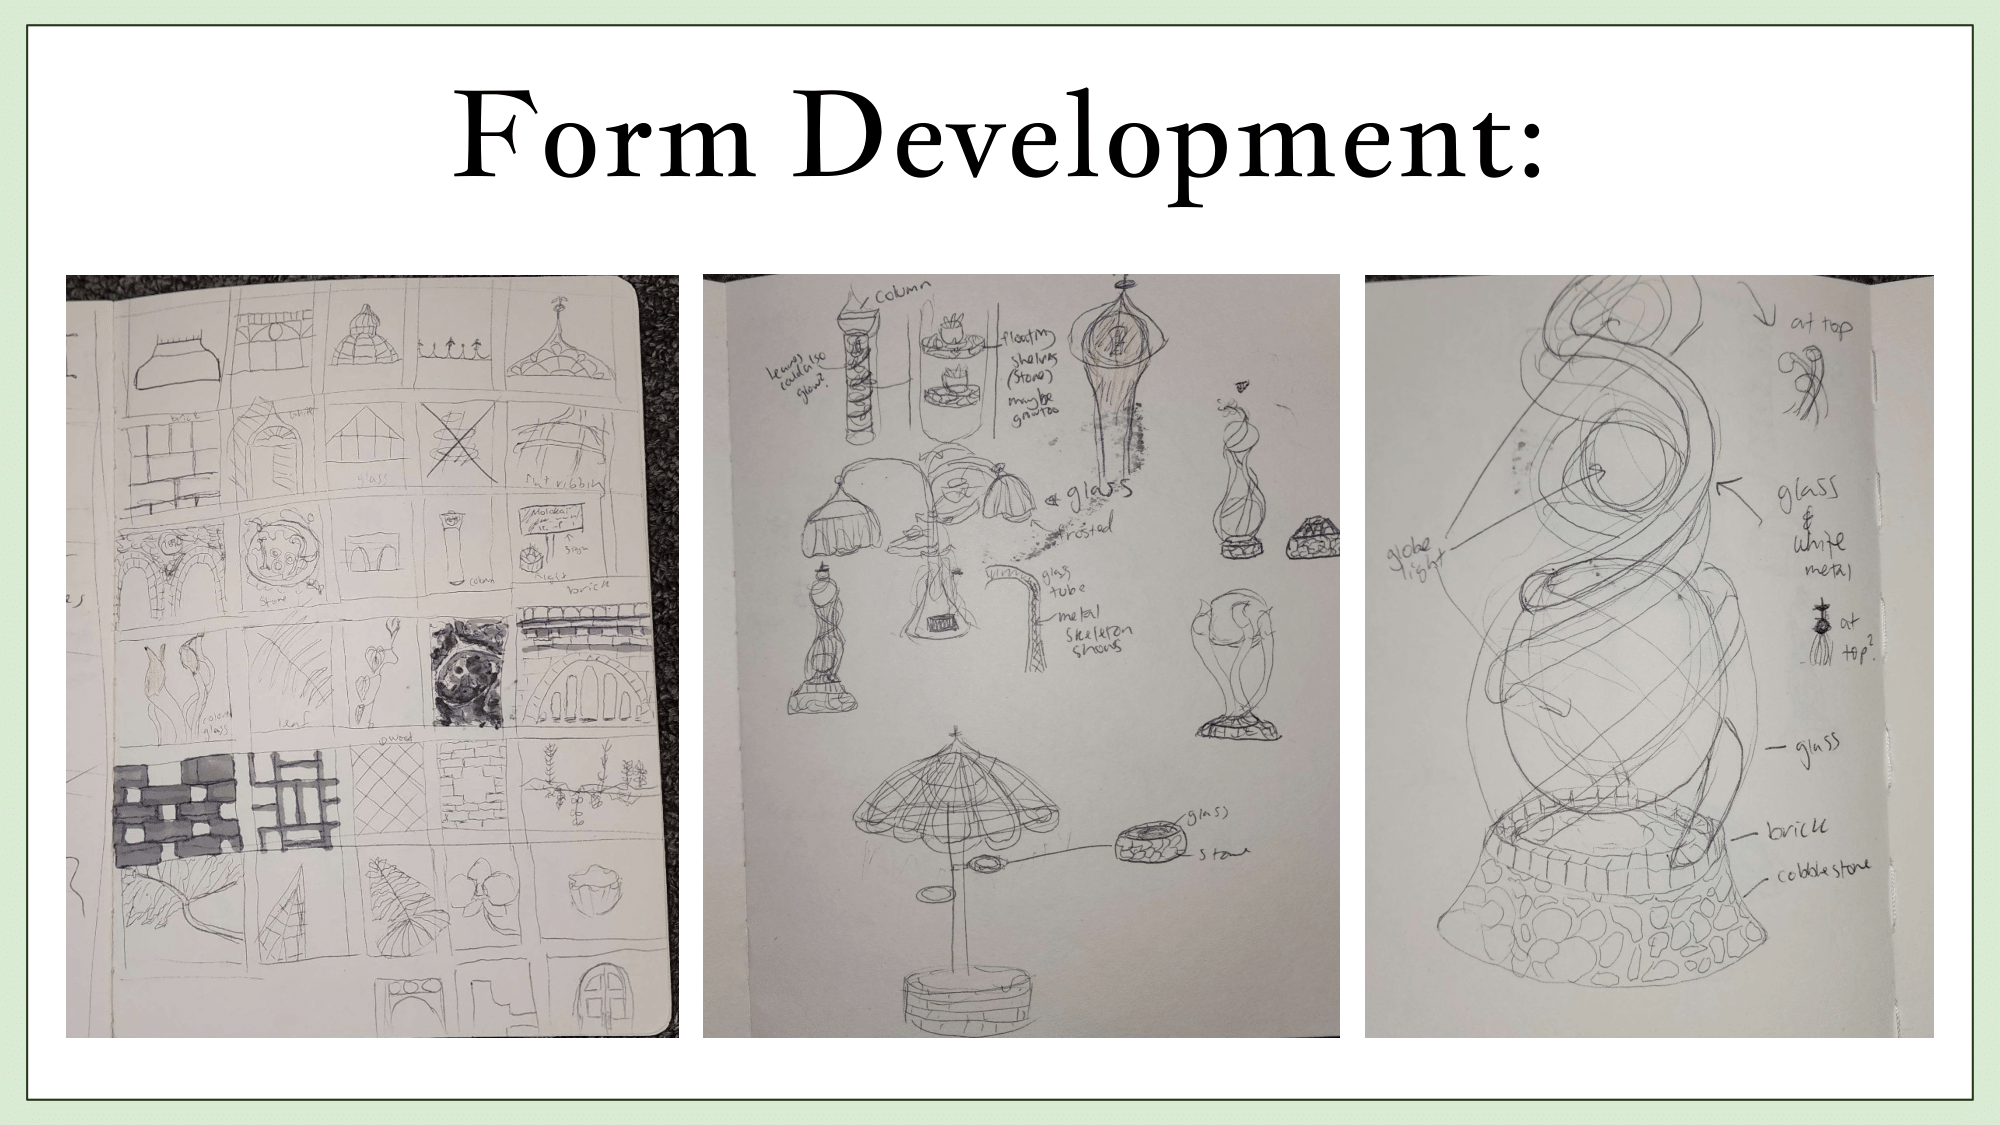 Form Development:
brick
white
glass
flat ribbin
1881
Stone
Column
Sign
brick
violent
glass
leaf
wood
Column
leaves
could also
glow?
floating
shelves
(stone)
maybe
glass
frosted
glass
tube
metal
skeleton
shows
glass
stone
at top
glass
&
white
metal
globe
light
at
top?
glass
brick
cobblestone